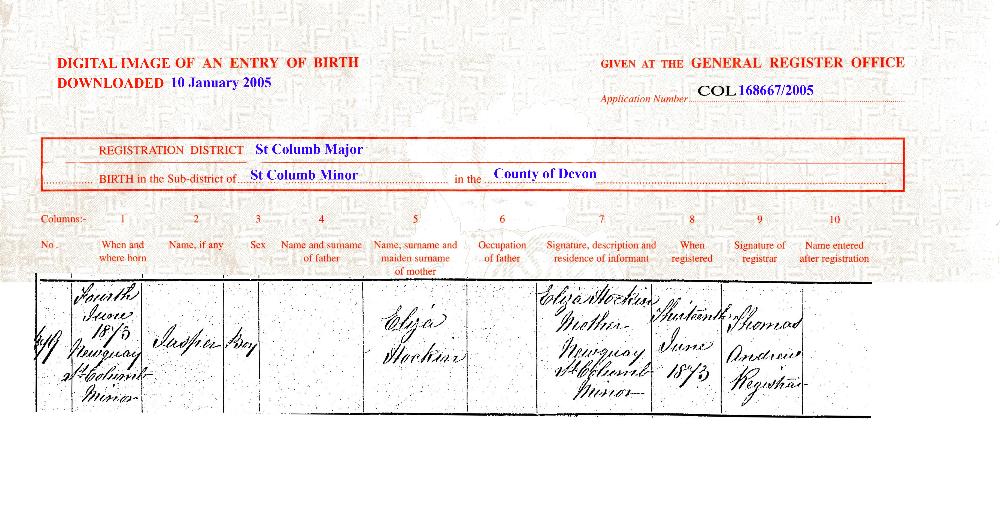 DIGITAL IMAGE OF AN ENTRY OF BIRTH
DOWNLOADED 10 January 2005
GIVEN AT THE GENERAL REGISTER OFFICE
Application Number COL 168667/2005
REGISTRATION DISTRICT St Columb Major
BIRTH in the Sub-district of St Columb Minor in the County of Devon
Columns:- 1 2 3 4 5 6 7 8 9 10
No. When and where born Name, if any Sex Name and surname of father Name, surname and maiden surname of mother Occupation of father Signature, description and residence of informant When registered Signature of registrar Name entered after registration
Fourth
June
1873
Newquay
St Columb
Minor
Jasper
Boy
Eliza
Hockin
Eliza Hockin
Mother
Newquay
St Columb
Minor
Thirteenth
June
1873
Thomas
Andrew
Registrar